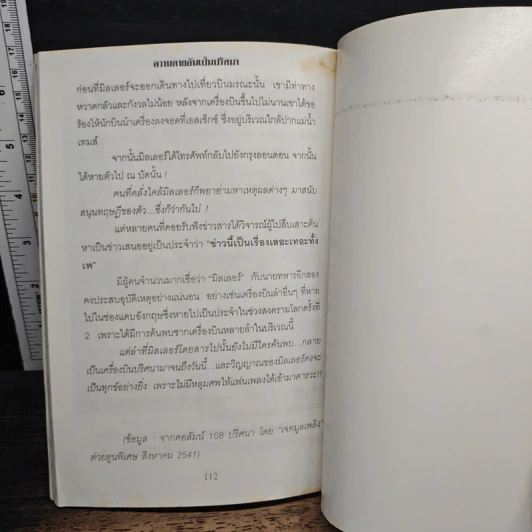 ความตายอันเป็นปริศนา
ก่อนที่มิลเลอร์จะออกเดินทางไปเที่ยวบินมรณะนั้น เขามีท่าทาง
หวาดกลัวและกังวลไม่น้อย หลังจากเครื่องบินขึ้นไปไม่นานเขาได้ขอ
ร้องให้นักบินนำเครื่องลงจอดที่เอสเซ็กซ์ ซึ่งอยู่บริเวณใกล้ปากแม่น้ำ
เทมส์
จากนั้นมิลเลอร์ได้โทรศัพท์กลับไปยังกรุงลอนดอน จากนั้น
ได้หายตัวไป ณ บัดนั้น !
คนที่คลั่งไคล้มิลเลอร์ก็พยายามหาเหตุผลต่างๆ มาสนับ
สนุนทฤษฎีของตัว...ซึ่งก็ว่ากันไป !
แต่หลายคนที่คอยรับฟังข่าวสารได้วิจารณ์ผู้ไปสืบเสาะค้น
หาเป็นข่าวเสนออยู่เป็นประจำว่า "ข่าวนี้เป็นเรื่องเลอะเทอะทั้ง
เพ"
มีผู้คนจำนวนมากเชื่อว่า "มิลเลอร์" กับนายทหารอีกสอง
คงประสบอุบัติเหตุอย่างแน่นอน อย่างเช่นเครื่องบินลำอื่นๆ ที่หาย
ไปในช่องแคบอังกฤษซึ่งหายไปเป็นประจำในช่วงสงครามโลกครั้งที่
2 เพราะได้มีการค้นพบซากเครื่องบินหลายลำในบริเวณนี้
แต่ลำที่มิลเลอร์โดยสารไปนั้นยังไม่มีใครค้นพบ...กลาย
เป็นเครื่องบินปริศนามาจนถึงวันนี้...และวิญญาณของมิลเลอร์คงจะ
เป็นทุกข์อย่างยิ่ง เพราะไม่มีหลุมศพให้แฟนเพลงได้เข้ามาคารวะ!!
(ข้อมูล : จากคอลัมน์ 108 ปริศนา โดย "เจตมูลเพลิง"
ต่วยตูนพิเศษ สิงหาคม 2541)
112
1
2
3
4
5